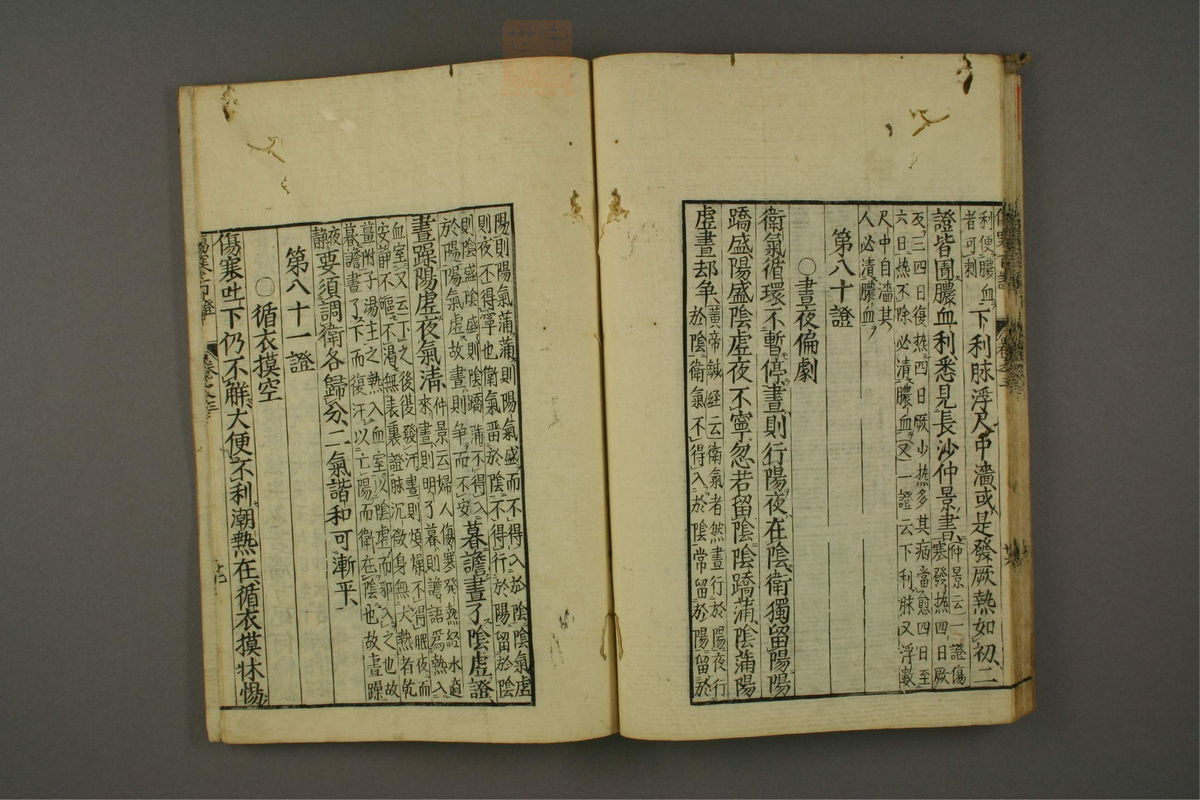 利便膿血
者可刺
下利脉浮尺中濇或是發厥熱如初二
證皆圊膿血利悉見長沙仲景書
仲景云一證傷
寒發熱四日厥
反三四日復熱四日厥少熱多其病當愈四日至
六日熱不除必清膿血又一證云下利脉又浮數
尺中自濇其
人必清膿血
第八十證
○晝夜偏劇
衛氣循環不暫停晝則行陽夜在陰衛獨留陽陽
蹻盛陽盛陰虛夜不寧忽若留陰陰蹻蒲陰蒲陽
虛晝却争
黃帝鍼經云衛氣者然晝行於陽夜行
於陰衛氣不得入於陰常留於陽留於
陽則陽氣蒲蒲則陽氣盛而不得入於陰陰氣虛
則夜不得寧也衛氣畱於陰不得行於陽留於陰
則陰盛陰盛則陰蹻蒲不得入
於陽陽氣虛故晝則争而不安
暮譫晝了陰虛證
晝躁陽虛夜氣清
仲景云婦人傷寒發熱經水適
來晝則明了暮則譫語為熱入
血室又云下之後復發汗晝則煩燥不得眠夜而
安靜不嘔不渴無表裏證脉沉微身無大熱者乾
薑附子湯主之熱入血室以陰虛而邪入之也故
暮譫晝了下而復汗以亡陽而衛在陰也故晝躁
夜
靜
要須調衛各歸分二氣諧和可漸平
第八十一證
○循衣摸空
傷寒吐下仍不解大便不利潮熱在循衣摸牀惕